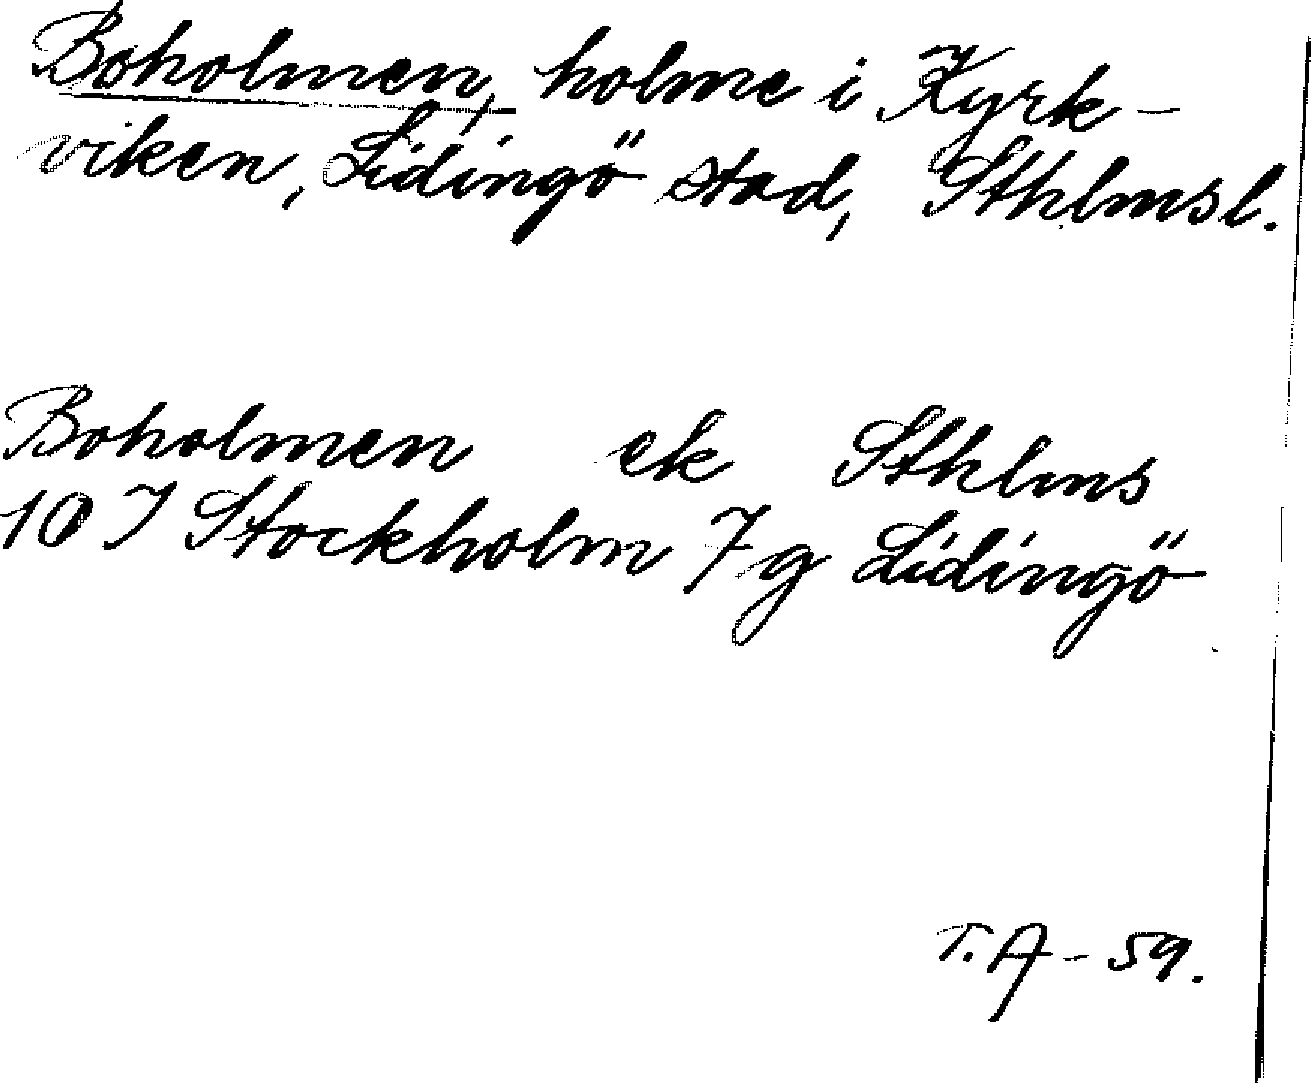 Boholmen, holme i Kyrk-
viken, Lidingö stad, Sthlmsl.
Boholmen ek Sthlms
10 I Stockholm 7 g Lidingö
T. A - 59.